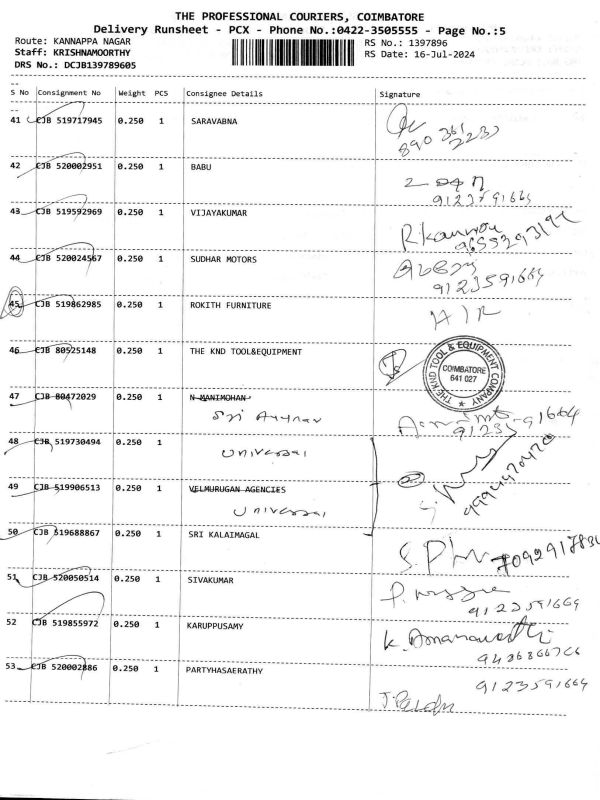 THE PROFESSIONAL COURIERS, COIMBATORE
Delivery Runsheet - PCX - Phone No.:0422-3505555 - Page No.:5
Route: KANNAPPA NAGAR RS No.: 1397896
Staff: KRISHNAMOORTHY RS Date: 16-Jul-2024
DRS No.: DCJB139789605
S No Consignment No Weight PCS Consignee Details Signature
41 CJB 519717945 0.250 1 SARAVABNA
890 361 2233
42 CJB 520002951 0.250 1 BABU
9123591664
43 CJB 519592969 0.250 1 VIJAYAKUMAR
44 CJB 520024567 0.250 1 SUDHAR MOTORS
9123591664
45 CJB 519862985 0.250 1 ROKITH FURNITURE
HIR
46 CJB 80525148 0.250 1 THE KND TOOL&EQUIPMENT
THE KND TOOL & EQUIPMENT COMPANY
COIMBATORE
641 027
47 CJB 80472029 0.250 1 N MANIMOHAN
Sri
9123591664
48 CJB 519730494 0.250 1
Universal
49 CJB 519906513 0.250 1 VELMURUGAN AGENCIES
Universal
50 CJB 519688867 0.250 1 SRI KALAIMAGAL
51 CJB 520050514 0.250 1 SIVAKUMAR
9123591664
52 CJB 519855972 0.250 1 KARUPPUSAMY
K. Amaravathi
53 CJB 520002886 0.250 1 PARTYHASAERATHY
9123591664